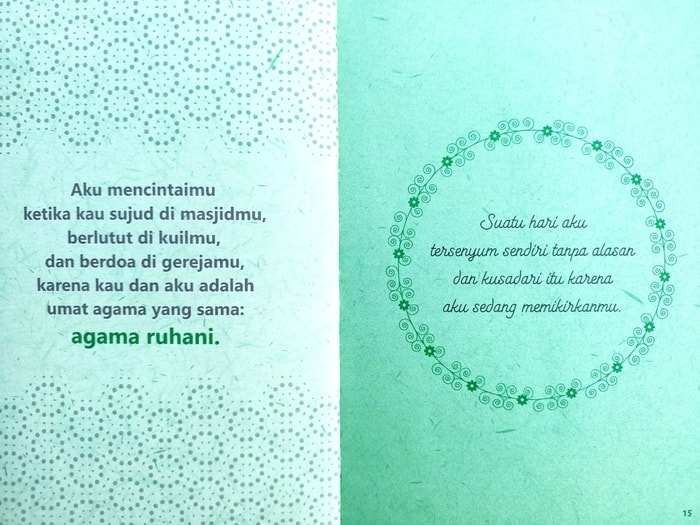 Aku mencintaimu
ketika kau sujud di masjidmu,
berlutut di kuilmu,
dan berdoa di gerejamu,
karena kau dan aku adalah
umat agama yang sama:
agama ruhani.
Suatu hari aku
tersenyum sendiri tanpa alasan
dan kusadari itu karena
aku sedang memikirkanmu.
15